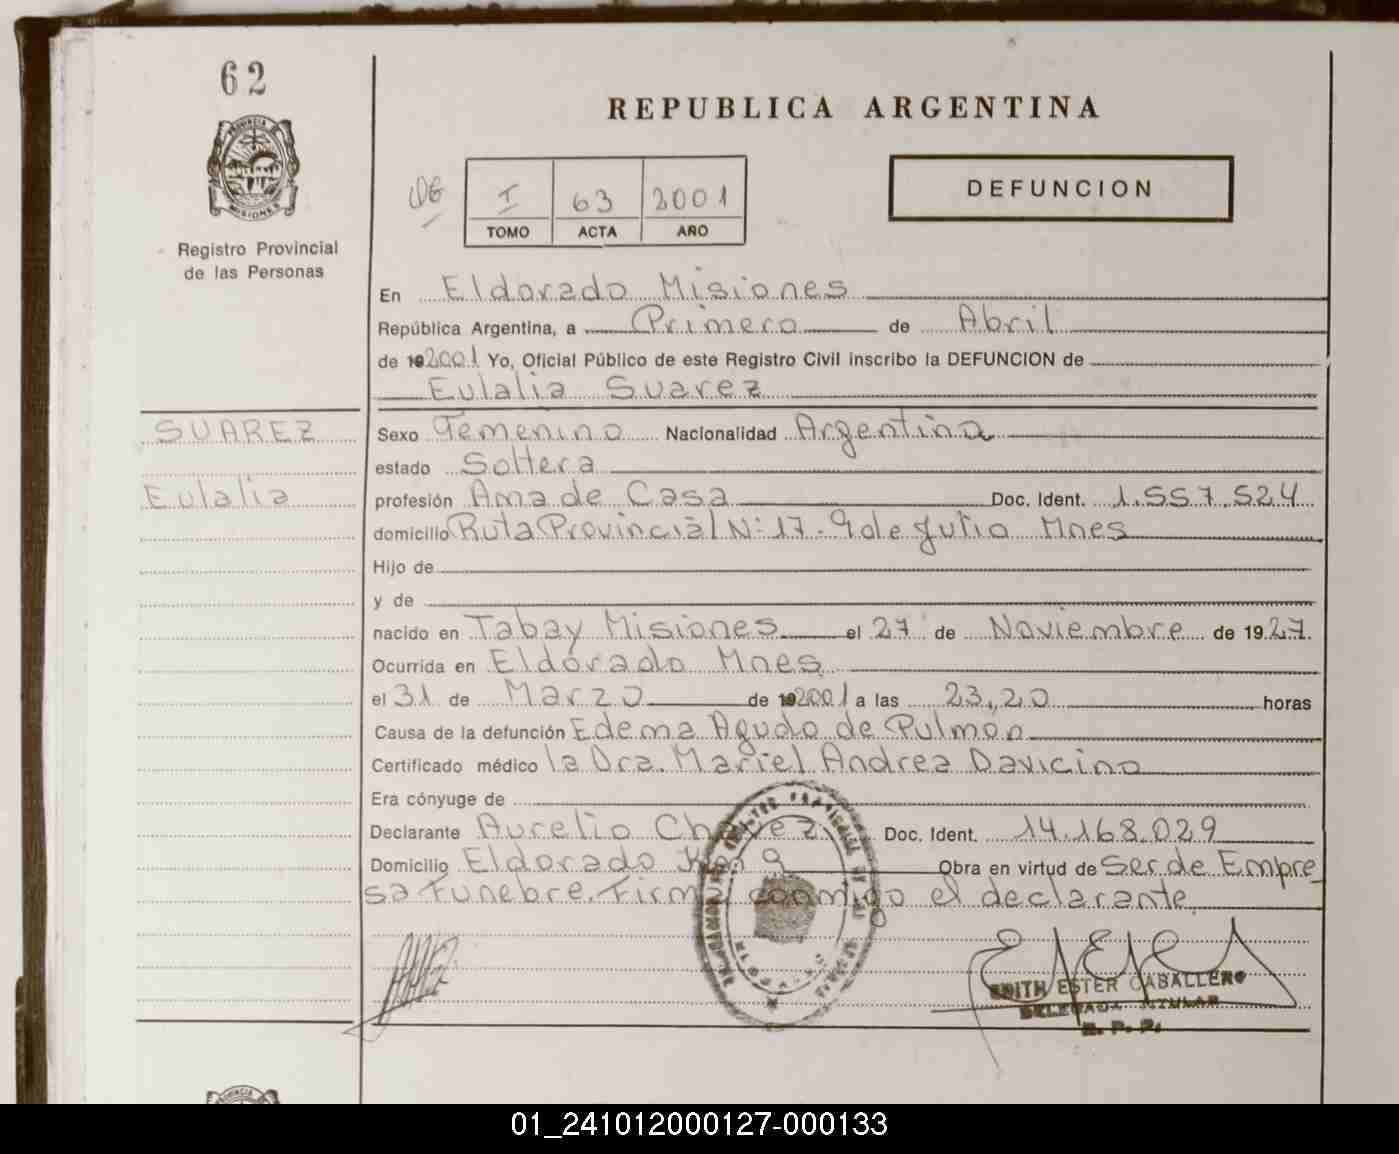 62
PROVINCIA DE
MISIONES
Registro Provincial
de las Personas
REPUBLICA ARGENTINA
DEFUNCION
I 63 2001
TOMO ACTA AÑO
En Eldorado Misiones
República Argentina, a Primero de Abril
de 192001 Yo, Oficial Público de este Registro Civil inscribo la DEFUNCION de
Eulalia Suarez
SUAREZ
Eulalia
Sexo Femenino Nacionalidad Argentina
estado Soltera
profesión Ama de Casa Doc. Ident. 1.557.524
domicilio Ruta Provincial Nº 17 - 9 de Julio Mnes
Hijo de
y de
nacido en Tabay Misiones el 27 de Noviembre de 1927.
Ocurrida en Eldorado Mnes
el 31 de Marzo de 192001 a las 23,20 horas
Causa de la defunción Edema Agudo de Pulmon
Certificado médico la Dra. Mariel Andrea Davicino
Era cónyuge de
Declarante Aurelio Chavez Doc. Ident. 14.168.029
Domicilio Eldorado Km 9 Obra en virtud de Ser de Empre
sa Funebre. Firma conmigo el declarante
EDITH ESTER CABALLERO
DELEGADA TITULAR
R. P. P.
01_241012000127-000133